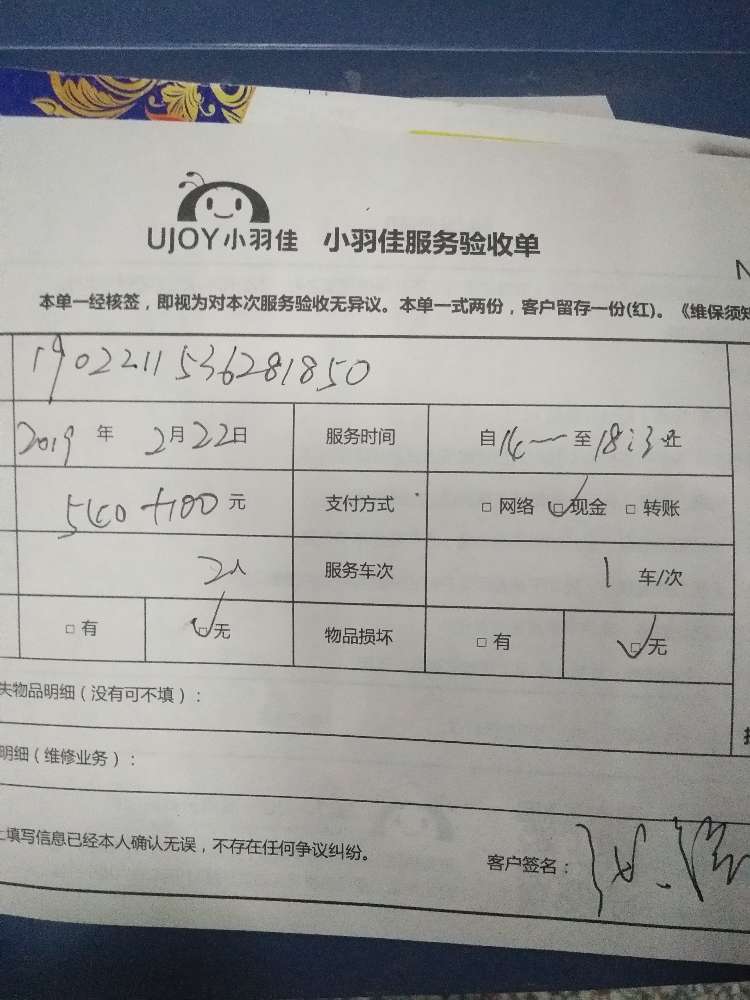 UJOY小羽佳 小羽佳服务验收单
N
本单一经核签，即视为对本次服务验收无异议。本单一式两份，客户留存一份(红)。《维保须知
1902211536281850
2019年2月22日 服务时间 自14一至18:3止
540+100元 支付方式 □网络 □现金 □转账
2人 服务车次 1车/次
□有 □无 物品损坏 □有 □无
失物品明细（没有可不填）：
明细（维修业务）：
上填写信息已经本人确认无误，不存在任何争议纠纷。 客户签名：